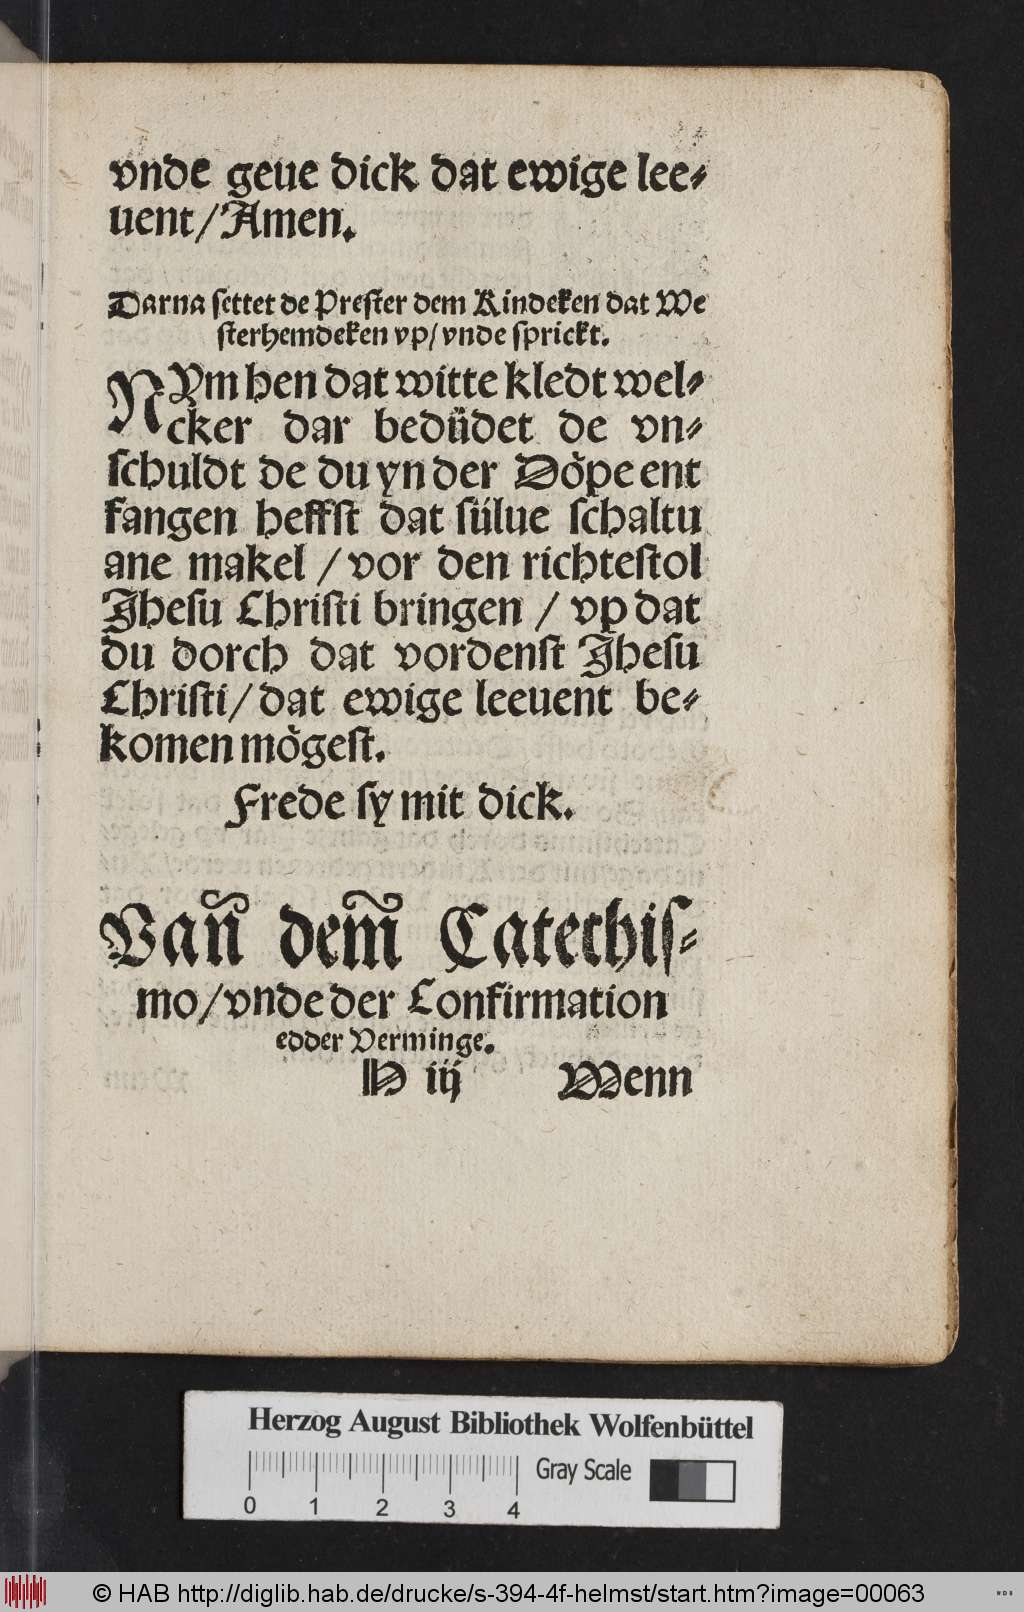 vnde geue dick dat ewige lee⸗
uent/Amen.
Darna settet de Prester dem Kindeken dat We
sterhemdeken vp/ vnde sprickt.
NYm hen dat witte kledt wel⸗
cker dar bedüdet de vn⸗
schuldt de du yn der Döpe ent
fangen heffst dat sülue schaltu
ane makel / vor den richtestol
Jhesu Christi bringen / vp dat
du dorch dat vordenst Jhesu
Christi/ dat ewige leeuent be⸗
komen mögest.
Frede sy mit dick.
Vañ dem̃ Catechis⸗
mo/ vnde der Confirmation
edder Verminge.
H iij Wenn
Herzog August Bibliothek Wolfenbüttel
Gray Scale
0 1 2 3 4
© HAB http://diglib.hab.de/drucke/s-394-4f-helmst/start.htm?image=00063